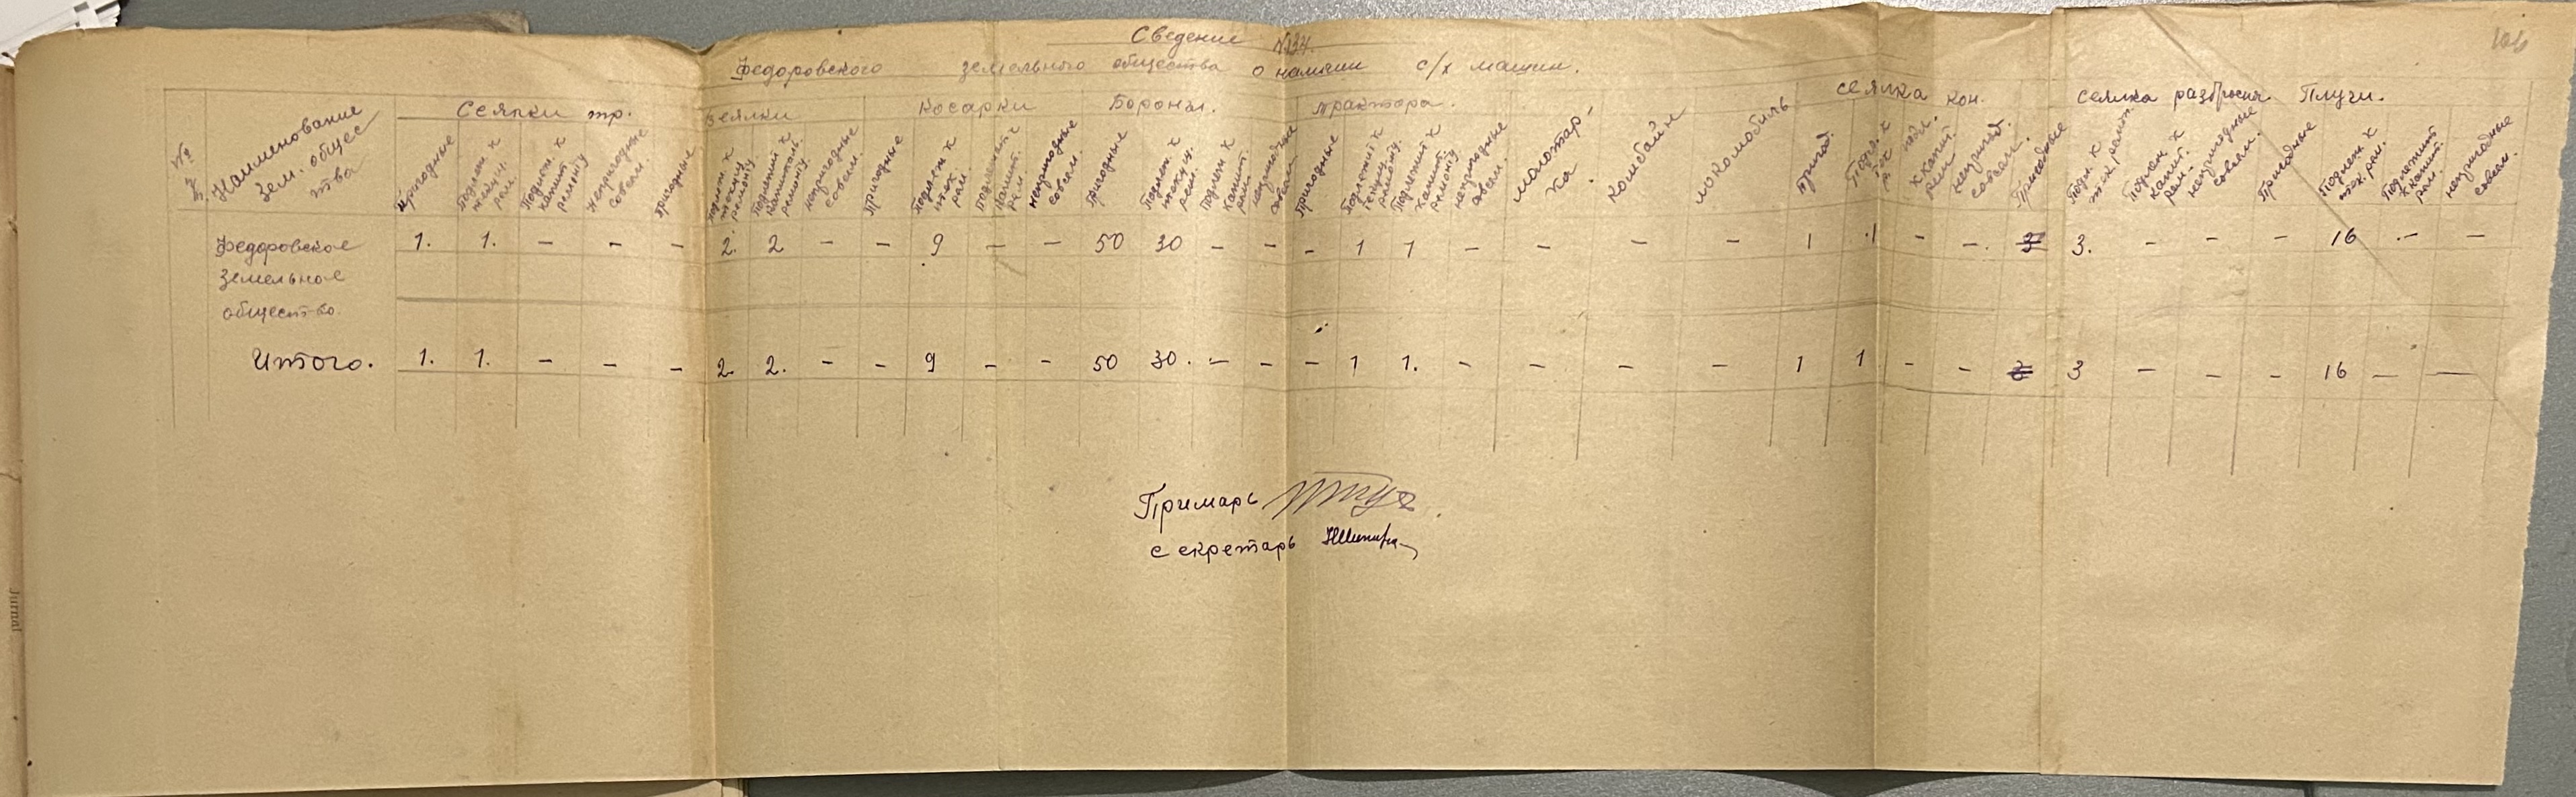 106
Сведение №134.
Федоровского земельного общества о наличии с/х машин.
№ Наименование зем. общества
Сеялки тр. Веялки Косарки Бороны. Трактора. Молотарка. Комбайн Локомобиль Сеялка кон. Сеялка разбросн. Плуги.
Пригодные Подлеж. к текущ. рем. Подлеж. к капит ремонту Непригодные совсем.
Пригодные Подлеж. к текущ ремонту Подлежит к капиталь. ремонту непригодные совсем.
Пригодные Подлеж к тек. рем. Подлежит к капит. рем. непригодные совсем.
Пригодные Подлеж. к текущ. рем. Подлеж к капит. рем непригодные совсем
Пригодные Подлежит к текущ. ремонту Подлежит к капит. ремонту непригодные совсем.
пригод. Подл. к тек р подл. к капит. рем непригод. совсем.
Пригодные Подл. к тек ремонт. Подлеж. к капит. рем. непригодные совсем.
Пригодные Подлеж. к тек. рем. Подлежит к капит. рем. непригодные совсем.
Федоровское 1. 1. – – – 2. 2 – – 9 – – 50 30 – – – 1 1 – – – – 1 1 – – 3 3. – – – 16 – –
земельное
общество.
Итого. 1. 1. – – – 2. 2. – – 9 – – 50 30. – – – 1 1. – – – – 1 1 – – 3 3 – – – 16 – –
Примарь
секретарь
Jurnal